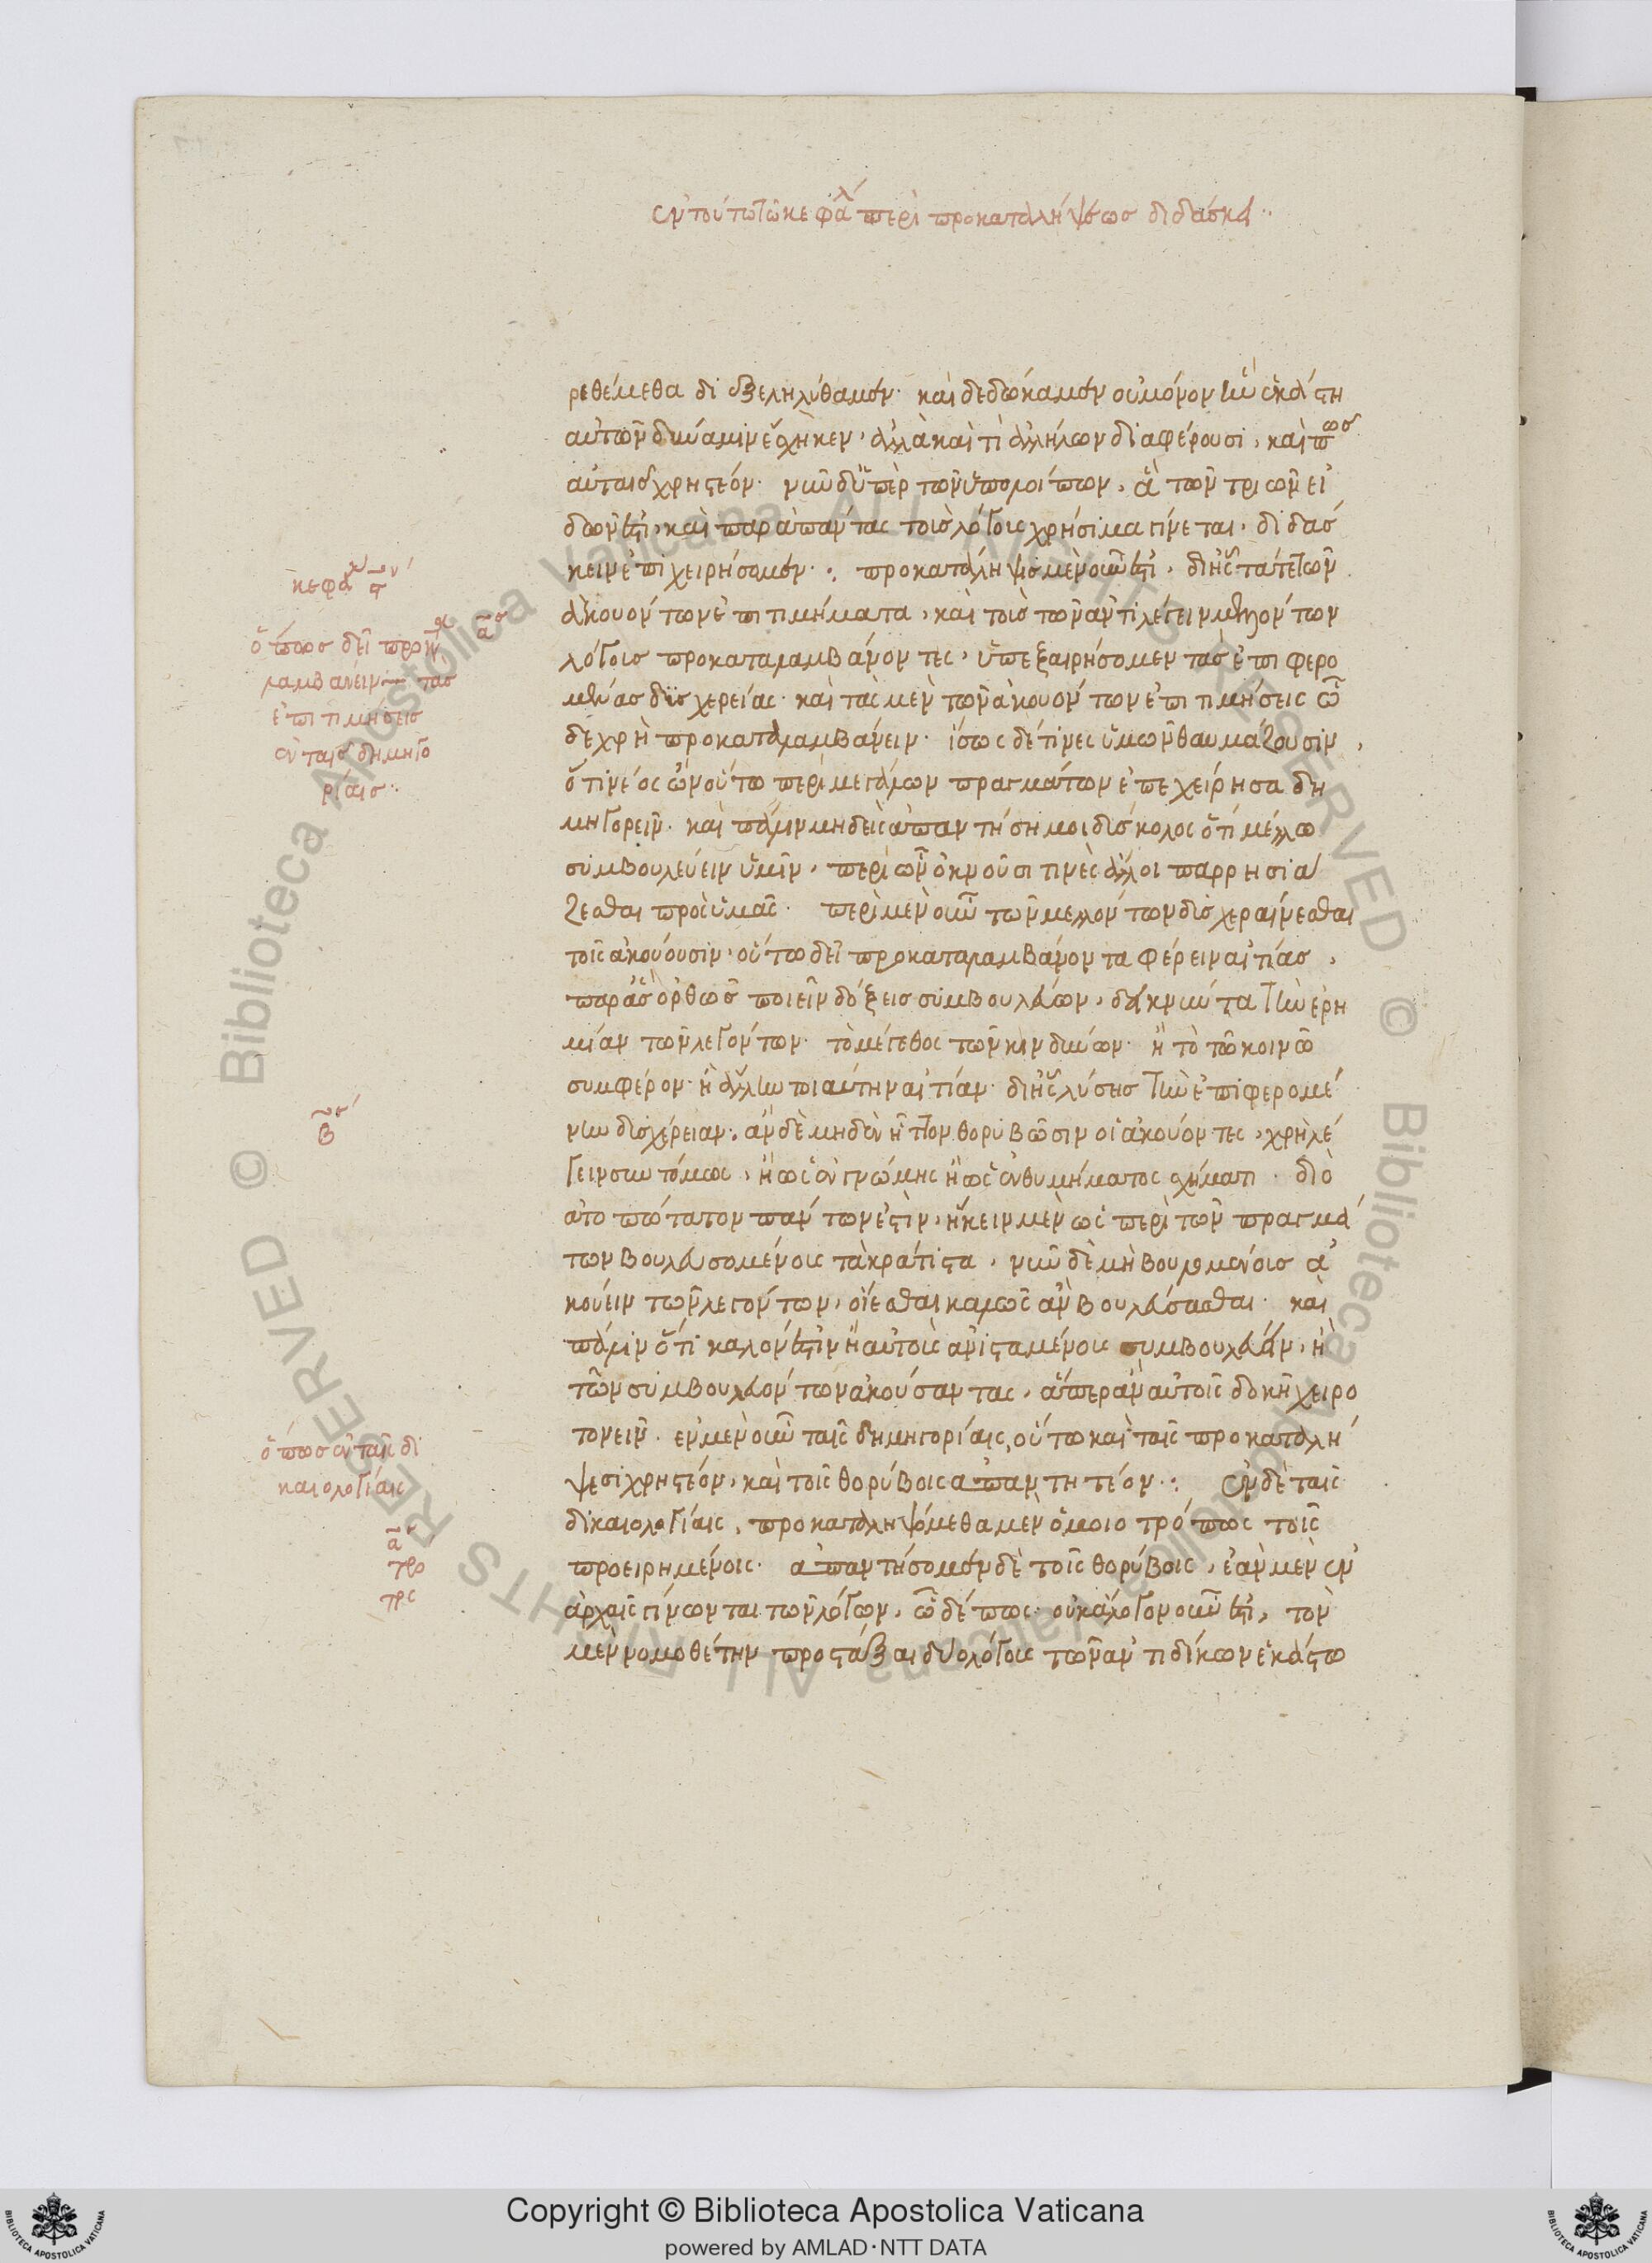 ἐν τούτω τῶ κεφαλ περὶ προκαταλήψεως διδάσκει··
ρεθέμεθα διεξεληλύθαμεν· καὶ δεδώκαμεν οὐ μόνον ἣν ἑκάστη
αὐτῶν δύναμιν εἴληχεν, ἀλλὰ καὶ τί ἀλλήλων διαφέρουσι, καὶ πῶς
αὐταῖς χρηστέον· νῦν δ' ὑπὲρ τῶν ὑπολοίπων, ἃ τῶν τριῶν εἰ
δῶν ἐστι, καὶ παρὰ πάντας τοὺς λόγους χρήσιμα γίνεται, διδάσ
κειν ἐπιχειρήσομεν·: προκατάληψις μὲν οὖν ἐστι, δι' ἧς τά τε τῶν
ἀκουόντων ἐπιτιμήματα, καὶ τοὺς τῶν ἀντιλέγειν μελλόντων
λόγους προκαταλαμβάνοντες, ὑπεξαιρήσομεν τὰς ἐπιφερο
μένας δυσχερείας· καὶ τὰς μὲν τῶν ἀκουόντων ἐπιτιμήσεις ὧ
δε χρὴ προκαταλαμβάνειν· ἴσως δέ τινες ὑμῶν θαυμάζουσιν,
ὅτι νέος ὢν οὕτω περὶ μεγάλων πραγμάτων ἐπεχείρησα δη
μηγορεῖν· καὶ πάλιν μηδεὶς ἀπαντήση μοι δύσκολος ὅτι μέλλω
συμβουλεύειν ὑμῖν, περὶ ὧν ὀκνοῦσι τινὲς ἄλλοι παρρησιά
ζεσθαι πρὸς ὑμᾶς· περὶ μὲν οὖν τῶν μελλόντων δυσχεραίνεσθαι
τοῖς ἀκούουσιν, οὕτω δεῖ προκαταλαμβάνοντα φέρειν αἰτίας,
παρ' ἃς ὀρθῶς ποιεῖν δόξεις συμβουλεύων, δεικνύντα τὴν ἐρη
μίαν τῶν λεγόντων· τὸ μέγεθος τῶν κινδύνων· ἢ τὸ τῶ κοινῶ
συμφέρον· ἢ ἄλλην τοιαύτην αἰτίαν· δι' ἧς λύσεις τὴν ἐπιφερομέ
νην δυσχέρειαν· ἂν δὲ μηδὲν ἧττον θορυβῶσιν οἱ ἀκούοντες, χρὴ λέ
γειν συντόμως, ἢ ὡς ἐν γνώμης ἢ ὡς ἐνθυμήματος σχήματι· διὸ
ἀτοπώτατον πάντων ἐστὶν, ἥκειν μὲν ὡς περὶ τῶν πραγμά
των βουλευσομένους τὰ κράτιστα, νῦν δὲ μὴ βουλομένοις ἀ
κούειν τῶν λεγόντων, οἴεσθαι καλῶς ἂν βουλεύσασθαι· καὶ
πάλιν ὅτι καλόν ἐστιν ἢ αὐτοὺς ἀνισταμένους συμβουλεύειν, ἢ
τῶν συμβουλευόντων ἀκούσαντας, ἅπερ ἂν αὐτοῖς δοκῆ χειρο
τονεῖν· ἐν μὲν οὖν ταῖς δημηγορίαις οὕτω καὶ ταῖς προκαταλή
ψεσι χρηστέον, καὶ τοῖς θορύβοις ἀπαντητέον·: ἐν δὲ ταῖς
δικαιολογίαις, προκαταληψόμεθα μὲν ὁμοιοτρόπως τοῖς
προειρημένοις· ἀπαντήσομεν δὲ τοῖς θορύβοις, ἐὰν μὲν ἐν
ἀρχαῖς γίνωνται τῶν λόγων, ὧδέ πως· οὐκ ἄλογον οὖν ἐστι, τὸν
μὲν νομοθέτην προστάξαι δύο λόγους τῶν ἀντιδίκων ἑκάστω
κεφα
ὅπως δεῖ προκα
λαμβάνειν τὰς
ἐπιτιμήσεις
ἐν ταῖς δημηγο
ρίαις··
β
ὅπως ἐν ταῖς δι
καιολογίαις
α
Copyright © Biblioteca Apostolica Vaticana
powered by AMLAD·NTT DATA
© Biblioteca Apostolica Vaticana ALL RIGHTS RESERVED
© Biblioteca Apostolica Vaticana ALL RIGHTS RESERVED
BIBLIOTECA APOSTOLICA VATICANA
BIBLIOTECA APOSTOLICA VATICANA